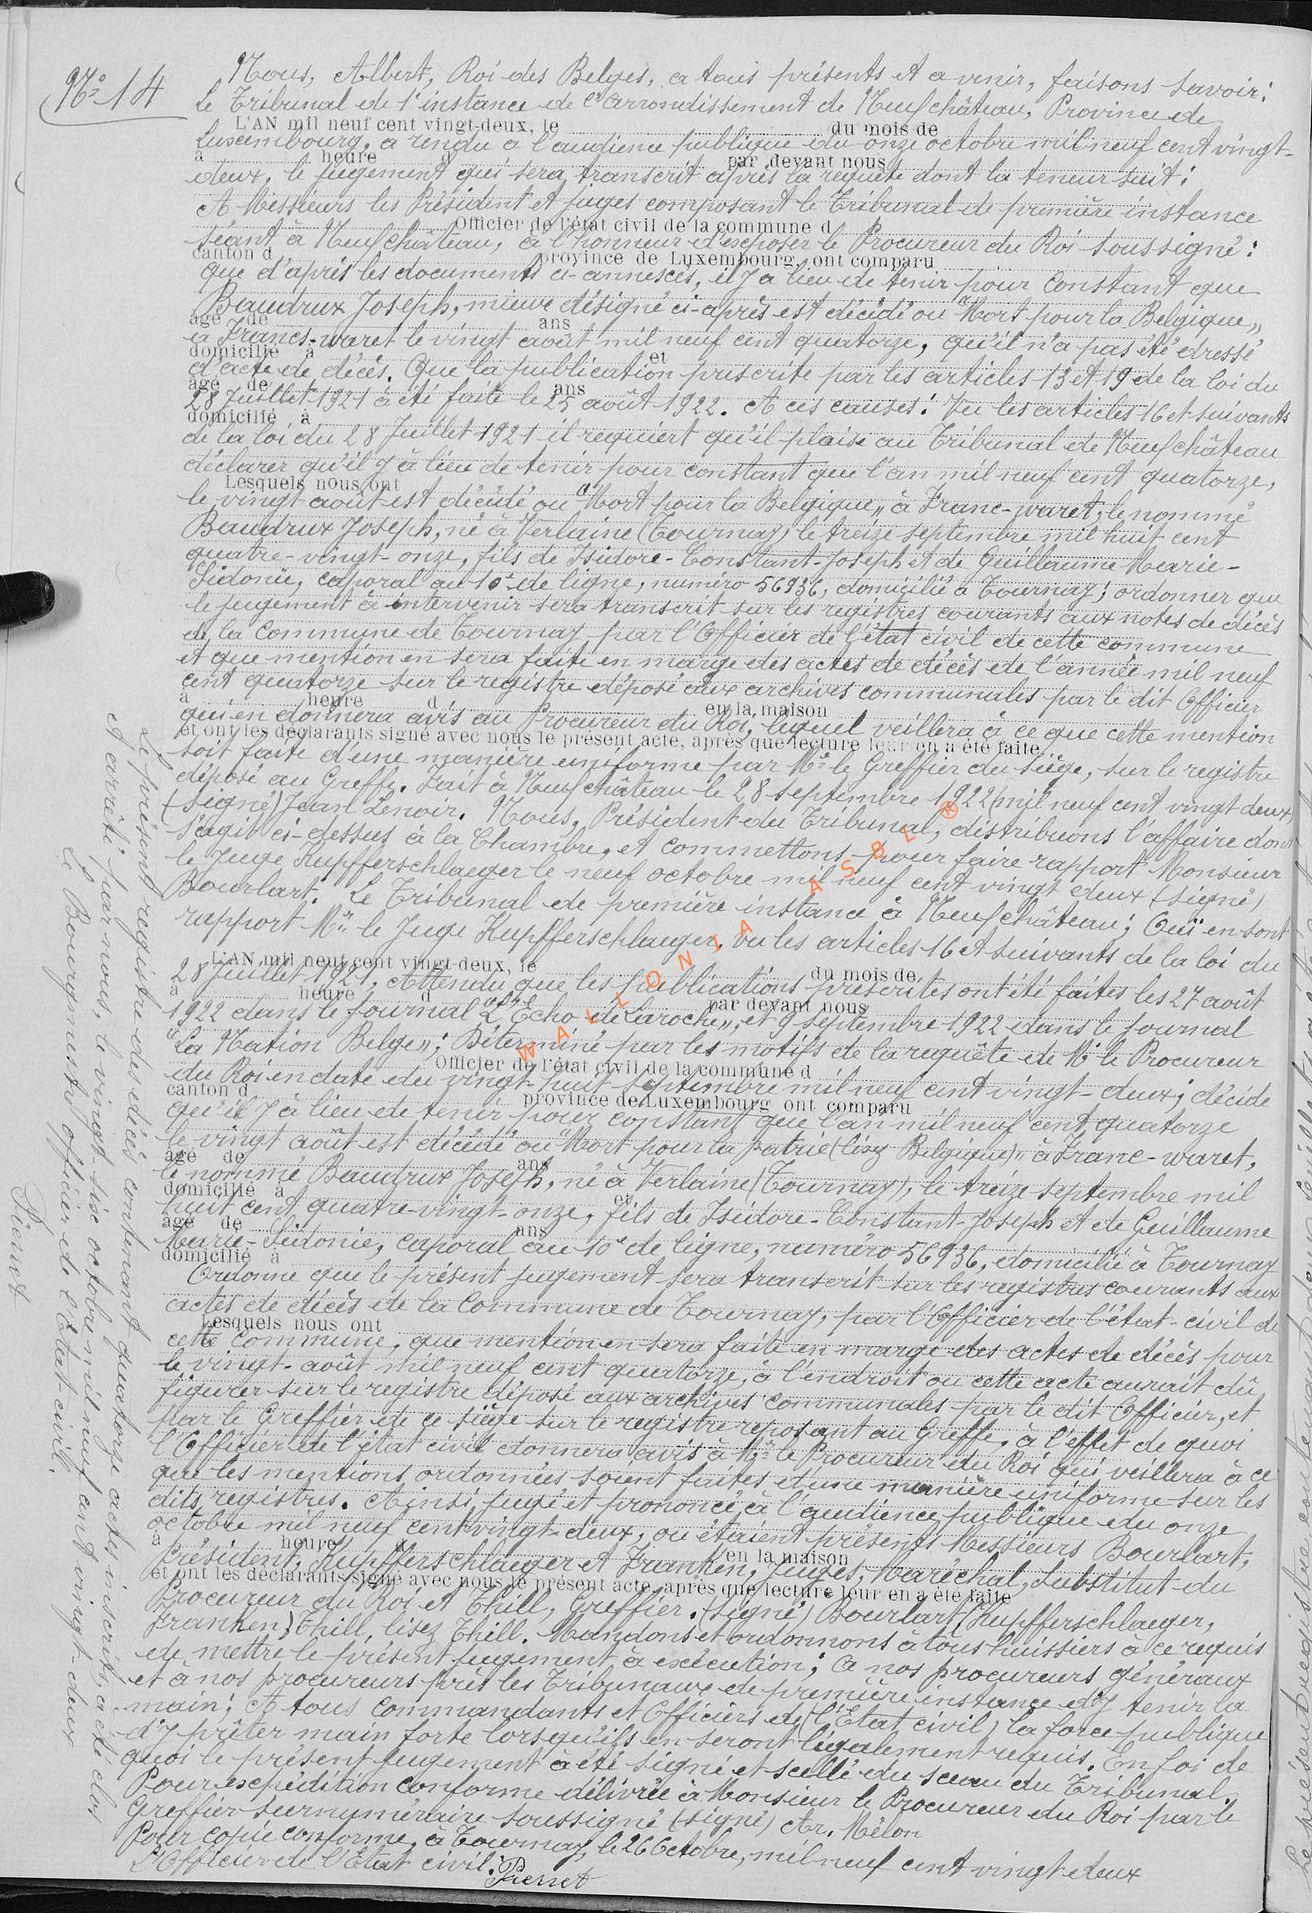 No 14
Nous, Albert, Roi des Belges, a tous présents et a venir, faisons savoir:
le Tribunal de 1e instance de l'arrondissement de Neufchâteau, Province de
L'AN mil neuf cent vingt-deux, le du mois de
Luxembourg, a rendu à l'audience publique du onze octobre mil neuf cent vingt-
à heure d par devant nous
deux, le jugement qui sera transcrit après la requête dont la teneur suit:
A Messieurs les Président et juges composant le Tribunal de première instance
Officier de l'état civil de la commune d
séant à Neufchâteau, à l'honneur d'exposer le Procureur du Roi soussigné:
canton d province de Luxembourg, ont comparu
que d'après les documents ci-annexés, il y a lieu de tenir pour constant que
Baudrux Joseph, mieux désigné ci-après est décédé ou "Mort pour la Belgique"
âgé de ans
à Francs-waret le vingt août mil neuf cent quatorze, qu'il n'a pas été dressé
domicilié à et
d'acte de décès. Que la publication prescrite par les articles 13 et 19 de la loi du
âgé de ans
28 Juillet 1921 a été faite le 25 août 1922. A ces causes: Vu les articles 16 et suivants
domicilié à
de la loi du 28 Juillet 1921 il requiert qu'il plaise au Tribunal de Neufchâteau
déclarer qu'il y à lieu de tenir pour constant que l'an mil neuf cent quatorze,
Lesquels nous ont
le vingt août est décédé ou "Mort pour la Belgique" à Franc-waret, le nommé
Baudrux Joseph, né à Verlaine (Tournay) le treize septembre mil huit cent
quatre-vingt-onze, fils de Isidore-Constant-Joseph et de Guillaume Marie-
Sidonie, caporal au 10e de ligne, numéro 56936, domicilié à Tournay; ordonner que
le jugement à intervenir sera transcrit sur les registres courants aux notes de décès
de la Commune de Tournay par l'Officier de l'état civil de cette commune
et que mention en sera faite en marge des actes de décès de l'année mil neuf
cent quatorze sur le registre déposé aux archives communales par le dit Officier
à heure d en la maison
qui en donnera avis au Procureur du Roi, lequel veillera à ce que cette mention
et ont les déclarants signé avec nous le présent acte, après que lecture leur en a été faite.
soit faite d'une manière uniforme par Mr le Greffier du siège, sur le registre
déposé au Greffe. Fait à Neufchâteau le 28 septembre 1922 (mil neuf cent vingt deux)
(signé) Jean Lenoir. Nous, Président du Tribunal, distribuons l'affaire dont
s'agit ci-dessus à la Chambre, et commettons pour faire rapport Monsieur
le Juge Kupfferschlaeger le neuf octobre mil neuf cent vingt deux (signé)
Bourlart. Le Tribunal de première instance à Neufchâteau; Ouï en sont
rapport Mr le Juge Kupfferschlaeger. Vu les articles 16 et suivants de la loi du
L'AN mil neuf cent vingt-deux, le du mois de
28 Juillet 1921, Attendu que les publications prescrites ont été faites les 27 août
à heure d par devant nous
1922 dans le journal "L'Echo de Laroche", et 9 septembre 1922 dans le journal
"La Nation Belge"; Déterminé par les motifs de la requête de Mr le Procureur
Officier de l'état civil de la commune d
du Roi en date du vingt-huit septembre mil neuf cent vingt-deux; décide
canton d province de Luxembourg ont comparu
qu'il y à lieu de tenir pour constant que l'an mil neuf cent quatorze
le vingt août est décédé ou "Mort pour la patrie (lisez Belgique)" à Franc-waret,
âgé de ans
le nommé Baudrux Joseph, né à Verlaine (Tournay), le treize septembre mil
domicilié à et
huit cent quatre-vingt-onze, fils de Isidore-Constant-Joseph et de Guillaume
âgé de ans
Marie-Sidonie, caporal au 10e de ligne, numéro 56936, domicilié à Tournay
domicilié à
Ordonne que le présent jugement sera transcrit sur les registres courants aux
actes de décès de la Commune de Tournay, par l'Officier de l'état-civil de
Lesquels nous ont
cette Commune, que mention en sera faite en marge des actes de décès pour
le vingt-août mil neuf cent quatorze, à l'endroit ou cette acte aurait dû
figurer sur le registre déposé aux archives communales par le dit Officier, et
par le Greffier de ce siège sur le registre reposant au Greffe, a l'effet de quoi
l'Officier de l'état civil donnera avis à Mr le Procureur du Roi qui veillera à ce
que les mentions ordonnées soient faites d'une manière uniforme sur les
dits registres. Ainsi jugé et prononcé à l'audience publique du onze
octobre mil neuf cent vingt-deux, ou étaient présents Messieurs Bourlart,
à heure d en la maison
Président, Kupfferschlaeger et Franken, Juges, Maréchal, Substitut du
et ont les déclarants signé avec nous le présent acte, après que lecture leur en a été faite
Procureur du Roi et Thill, Greffier. (signé) Bourlart, Kupfferschlaeger,
Franken) Thill, lisez Thill. Mandons et ordonnons à tous huissiers à ce requis
de mettre le présent jugement à exécution; a nos procureurs généraux
et à nos procureurs près les Tribunaux de première instance d'y tenir la
main; A tous commandants et Officiers de (l'Etat civil) la force publique
d'y prêter main forte lorsqu'ils en seront légalement requis. En foi de
quoi le présent jugement à été signé et scellé du sceau du Tribunal.
Pour expédition conforme délivrée à Monsieur le Procureur du Roi par le
Greffier surnuméraire soussigné (signé) Ar. Mélon
Pour copie conforme, à Tournay, le 26 Octobre, mil neuf cent vingt deux
L'Officier de l'Etat civil:
Pierret
Le présent registre des décès contenant quatorze actes inscrits, a été clos
et arrêté par nous, le vingt-six octobre mil neuf cent vingt-deux
Le Bourgmestre officier de l'Etat-civil.
Pierret
WALLONIA ASBL ®